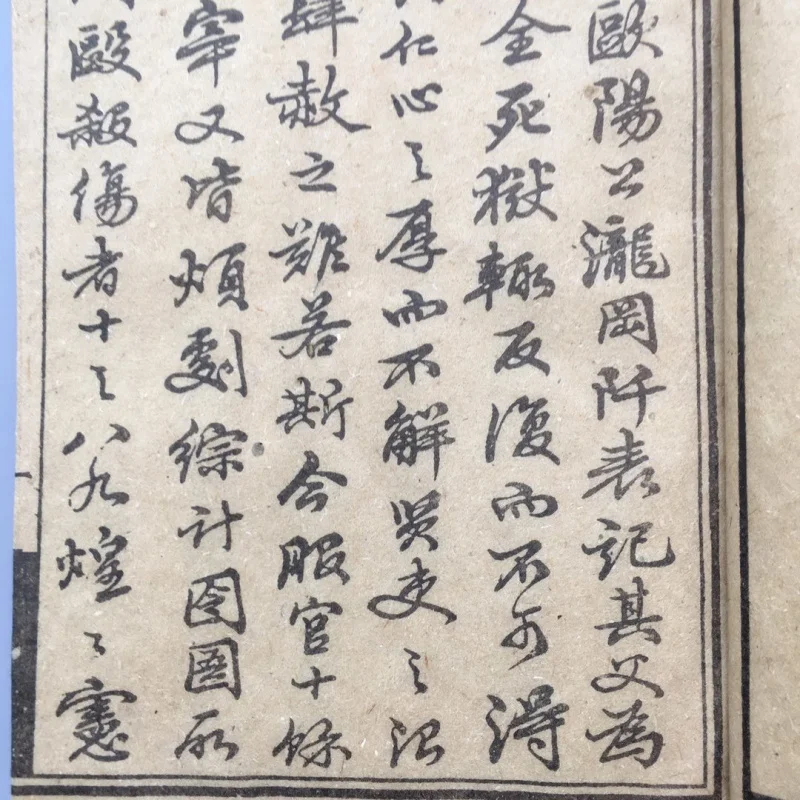 歐陽公瀧岡阡表記其父為
全死獄輒反復而不可得
仁心之厚而不解賢吏之治
肆赦之難若斯今服官十餘
宰又皆煩劇綜計囹圄所
毆殺傷者十之八九煌〻憲